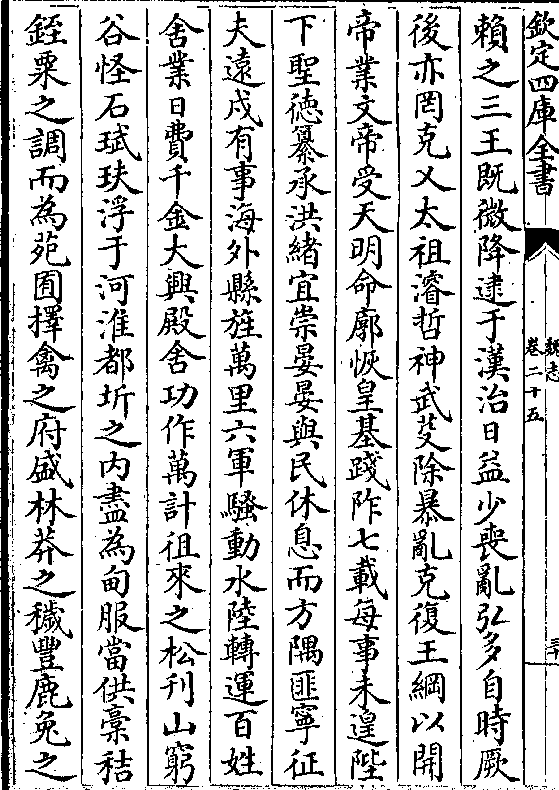 欽定四庫全書
魏志
卷二十五
三十
賴之三王既微降逮于漢治日益少喪亂弘多自時厥
後亦罔克乂太祖濬哲神武芟除暴亂克復王綱以開
帝業文帝受天明命廓恢皇基踐阼七載每事未遑陛
下聖德纂承洪緒宜崇晏晏與民休息而方隅匪寧征
夫遠戍有事海外縣旌萬里六軍騷動水陸轉運百姓
舍業日費千金大興殿舍功作萬計徂來之松刋山窮
谷怪石珷玞浮于河淮都圻之内盡為甸服當供稾秸
銍粟之調而為苑囿擇禽之府盛林莽之穢豐鹿兔之